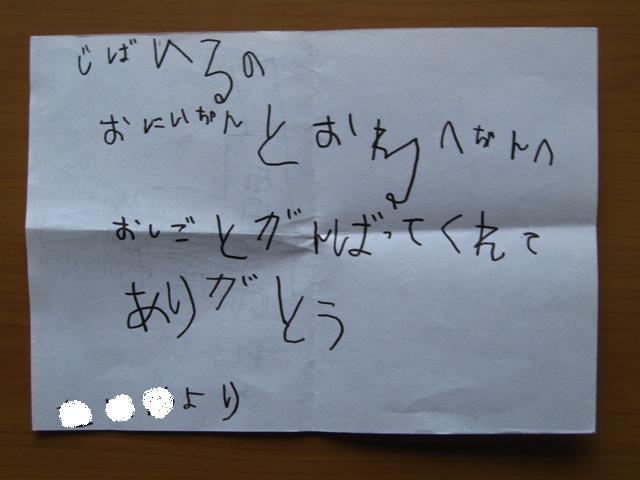 じばいるの
おにいちゃんとおねへちゃんへ
おしごとがんばってくれて
ありがとう
より